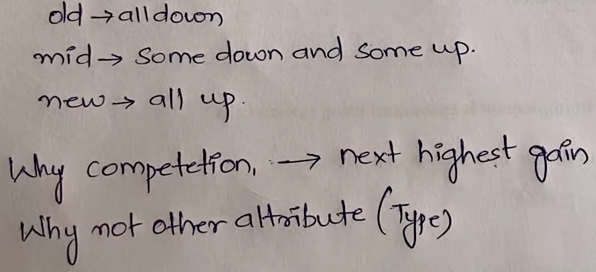 old → all down
mid → some down and some up.
new → all up.
Why competetion, → next highest gain
Why not other attribute (Type)